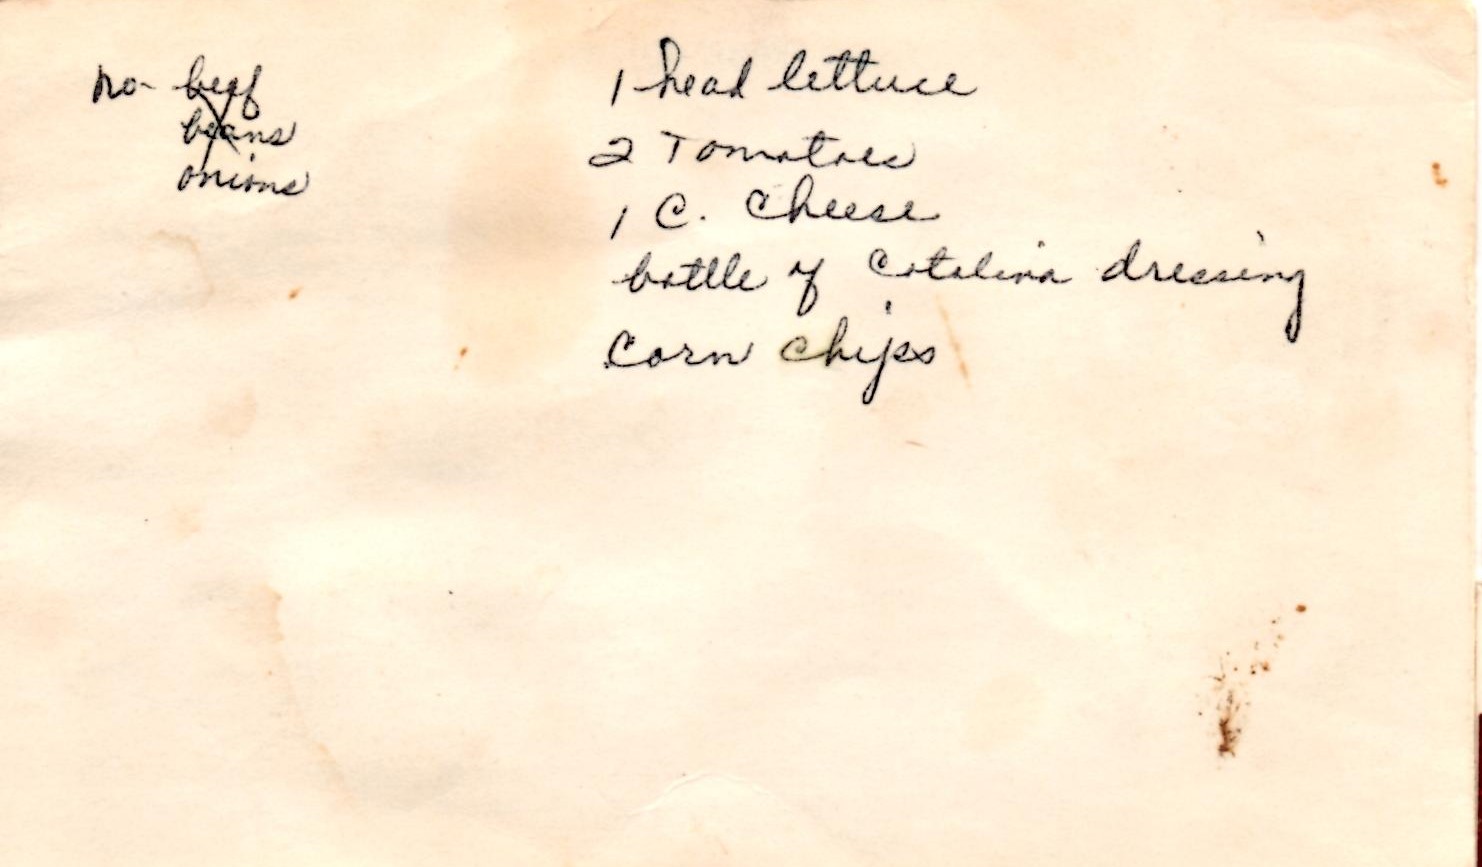 no- beef
beans
onions
1 head lettuce
2 Tomatoes
1 C. Cheese
bottle of Catalina dressing
Corn chips